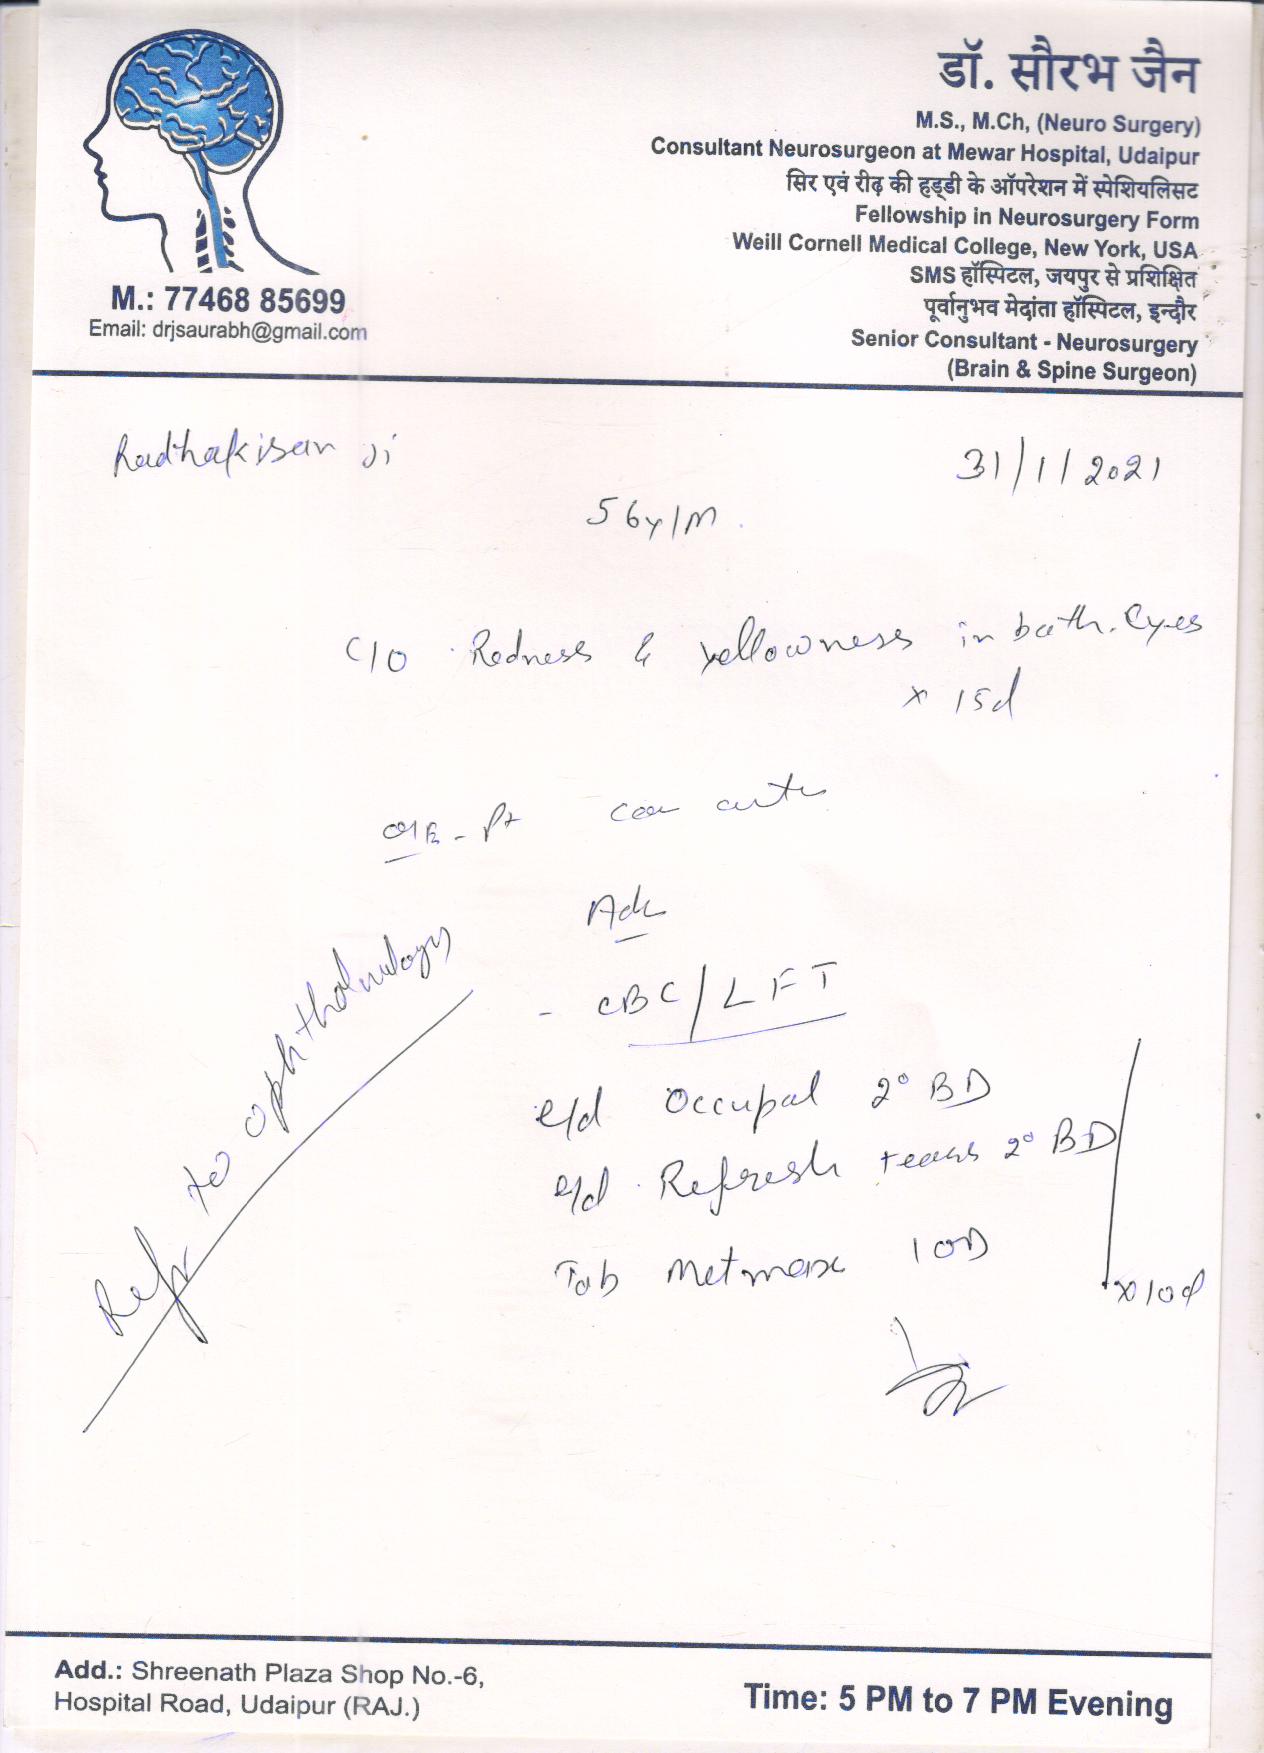 डॉ. सौरभ जैन
M.S., M.Ch, (Neuro Surgery)
Consultant Neurosurgeon at Mewar Hospital, Udaipur
सिर एवं रीढ़ की हड्डी के ऑपरेशन में स्पेशियलिसट
Fellowship in Neurosurgery Form
Weill Cornell Medical College, New York, USA
SMS हॉस्पिटल, जयपुर से प्रशिक्षित
पूर्वानुभव मेदांता हॉस्पिटल, इन्दौर
Senior Consultant - Neurosurgery
(Brain & Spine Surgeon)
M.: 77468 85699
Email: drjsaurabh@gmail.com
Radhakisan Ji
31/1/2021
56y/M
C/O Redness & yellowness in both Eyes
x 15d
O/E - Pt
Adv
- CBC/LFT
e/d Occupal 2° BD
e/d Refresh tears 2° BD
Tab Metmax 1 OD
x 10d
Refer to ophthalmology
Add.: Shreenath Plaza Shop No.-6,
Hospital Road, Udaipur (RAJ.)
Time: 5 PM to 7 PM Evening